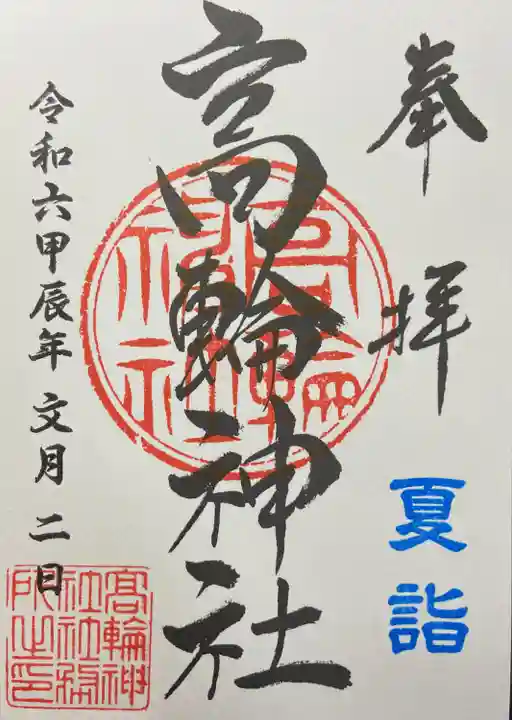 奉拝
夏詣
高輪神社
令和六甲辰年 文月 二日
高輪神
社社務
所之印